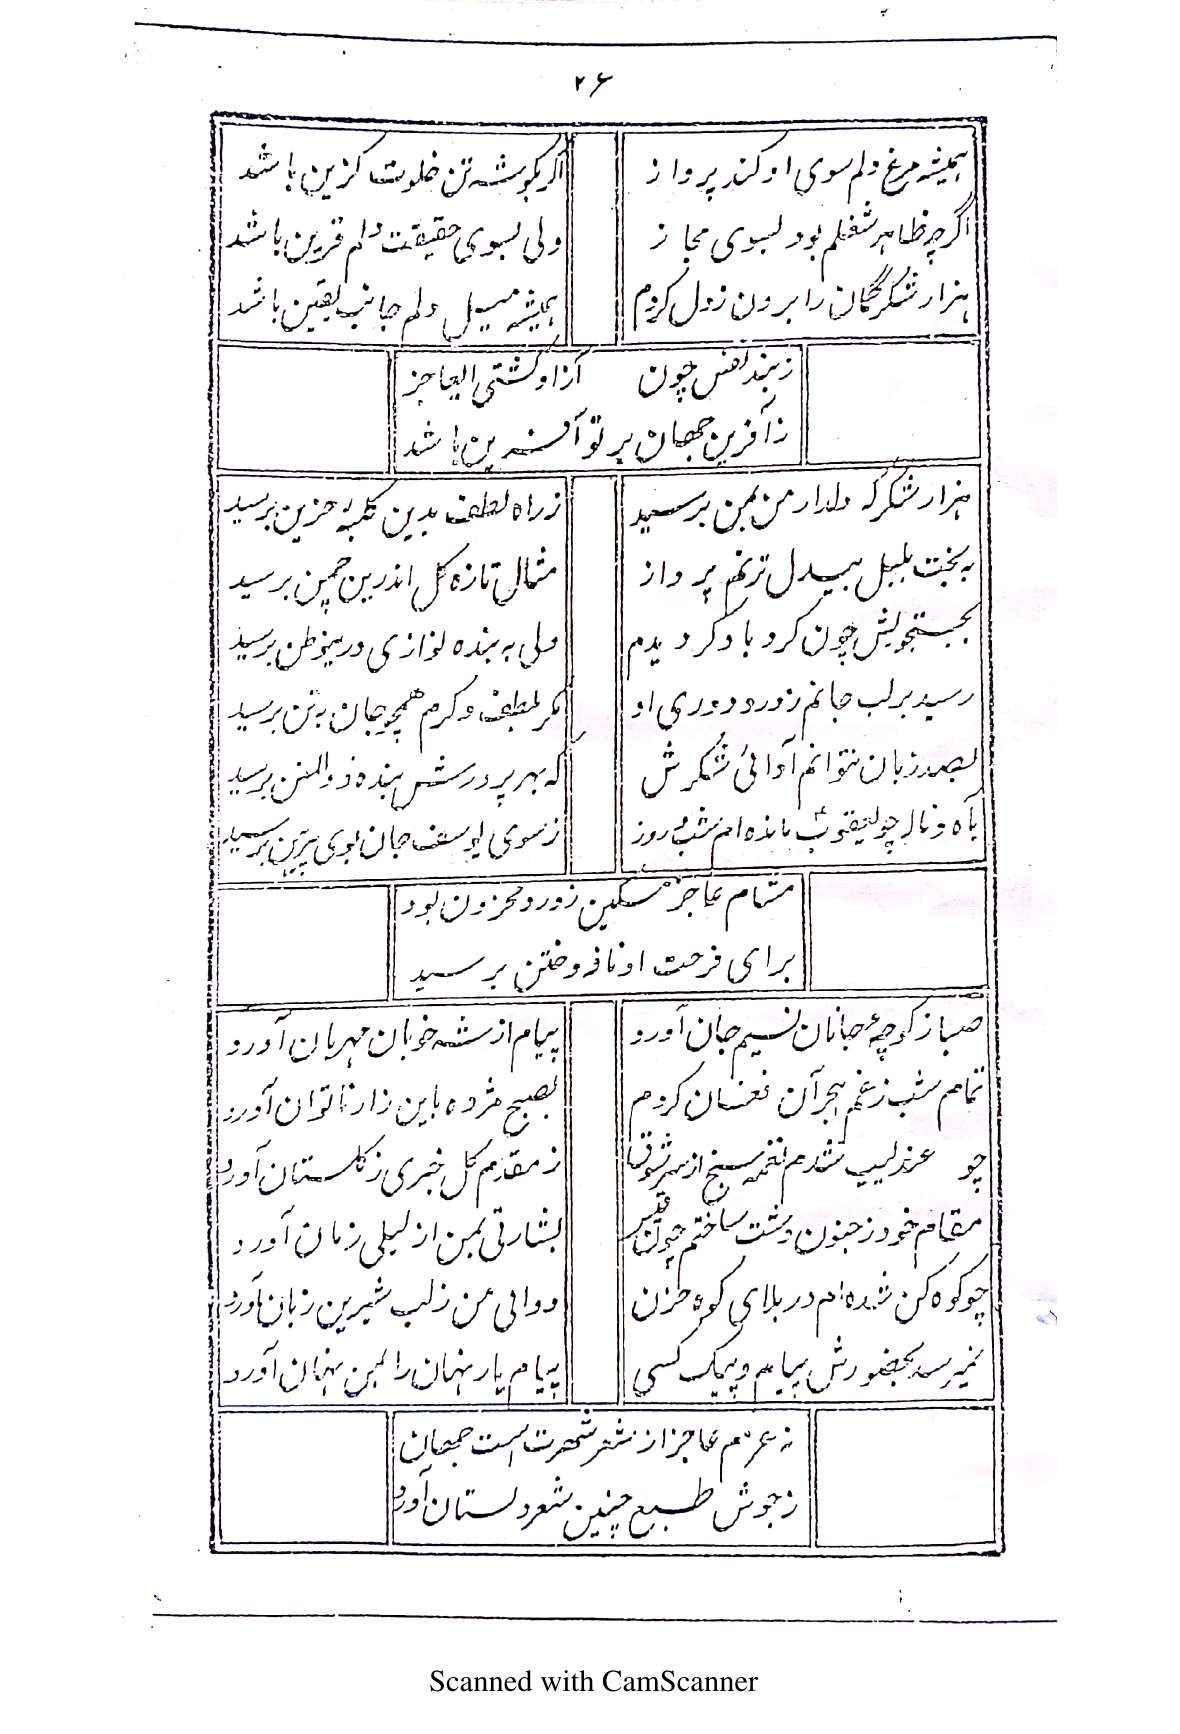 ۲۶
همیشه مرغ دلم سوی او کند پرواز
اگر بگوشه تن خلوت گزین باشد
اگرچه ظاهر شغلم بود بسوی مجاز
ولی بسوی حقیقت دلم قرین باشد
هزار شکر گمان را برون ز دل کردم
همیشه میل دلم جانب یقین باشد
ز بند نفس چون آزاد گشتی العاجز
ز آفرین جهان بر تو آفرین باشد
هزار شکر که دلدار من بمن برسید
ز راه لطف بدین کلبۂ حزین برسید
به بخت بلبل بیدل ترنم پرداز
مثال تازه گل اندرین چمن برسید
بجستجویش چون گرد باد گردیدم
ولی به بنده نوازی درینوطن برسید
رسید بر لب جانم ز درد دوری او
مگر لطف و کرم همچو جان به تن برسید
بصد زبان نتوانم آدائی شکرش
که بهر پرورشس بنده ذوالمنن برسید
بآه و ناله چو یعقوبؑ مانده ام شب روز
ز سوی یوسف جان بوی پیرہن برسید
مشام عاجز مسکین ز درد محزون بود
برای فرحت او نافۂ ختن برسید
صبا ز کوچۂ جانان نسیم جان آورد
پیام از شه خوبان مهربان آورد
تمام شب ز غم هجر آن فغان کردم
بصبح مژده باین زار ناتوان آورد
چو عندلیب شدم نغمه سنج از سر شوق
ز مقدم گل خبری ز گلستان آورد
مقام خود ز جنون دشت ساختم چون قیس
بشارتی بمن از لیلی زمان آورد
چو کوه کن شده ام در بلای کوه حزن
دوائی من ز لب شیرین زبان آورد
نمیرسد بحضورش پیام و پیک کسی
پیام یار نهان را بمن نهان آورد
نه عزم عاجز از شعر شهرت است جهان
ز جوش طبع چنین شعر دلستان آورد
Scanned with CamScanner